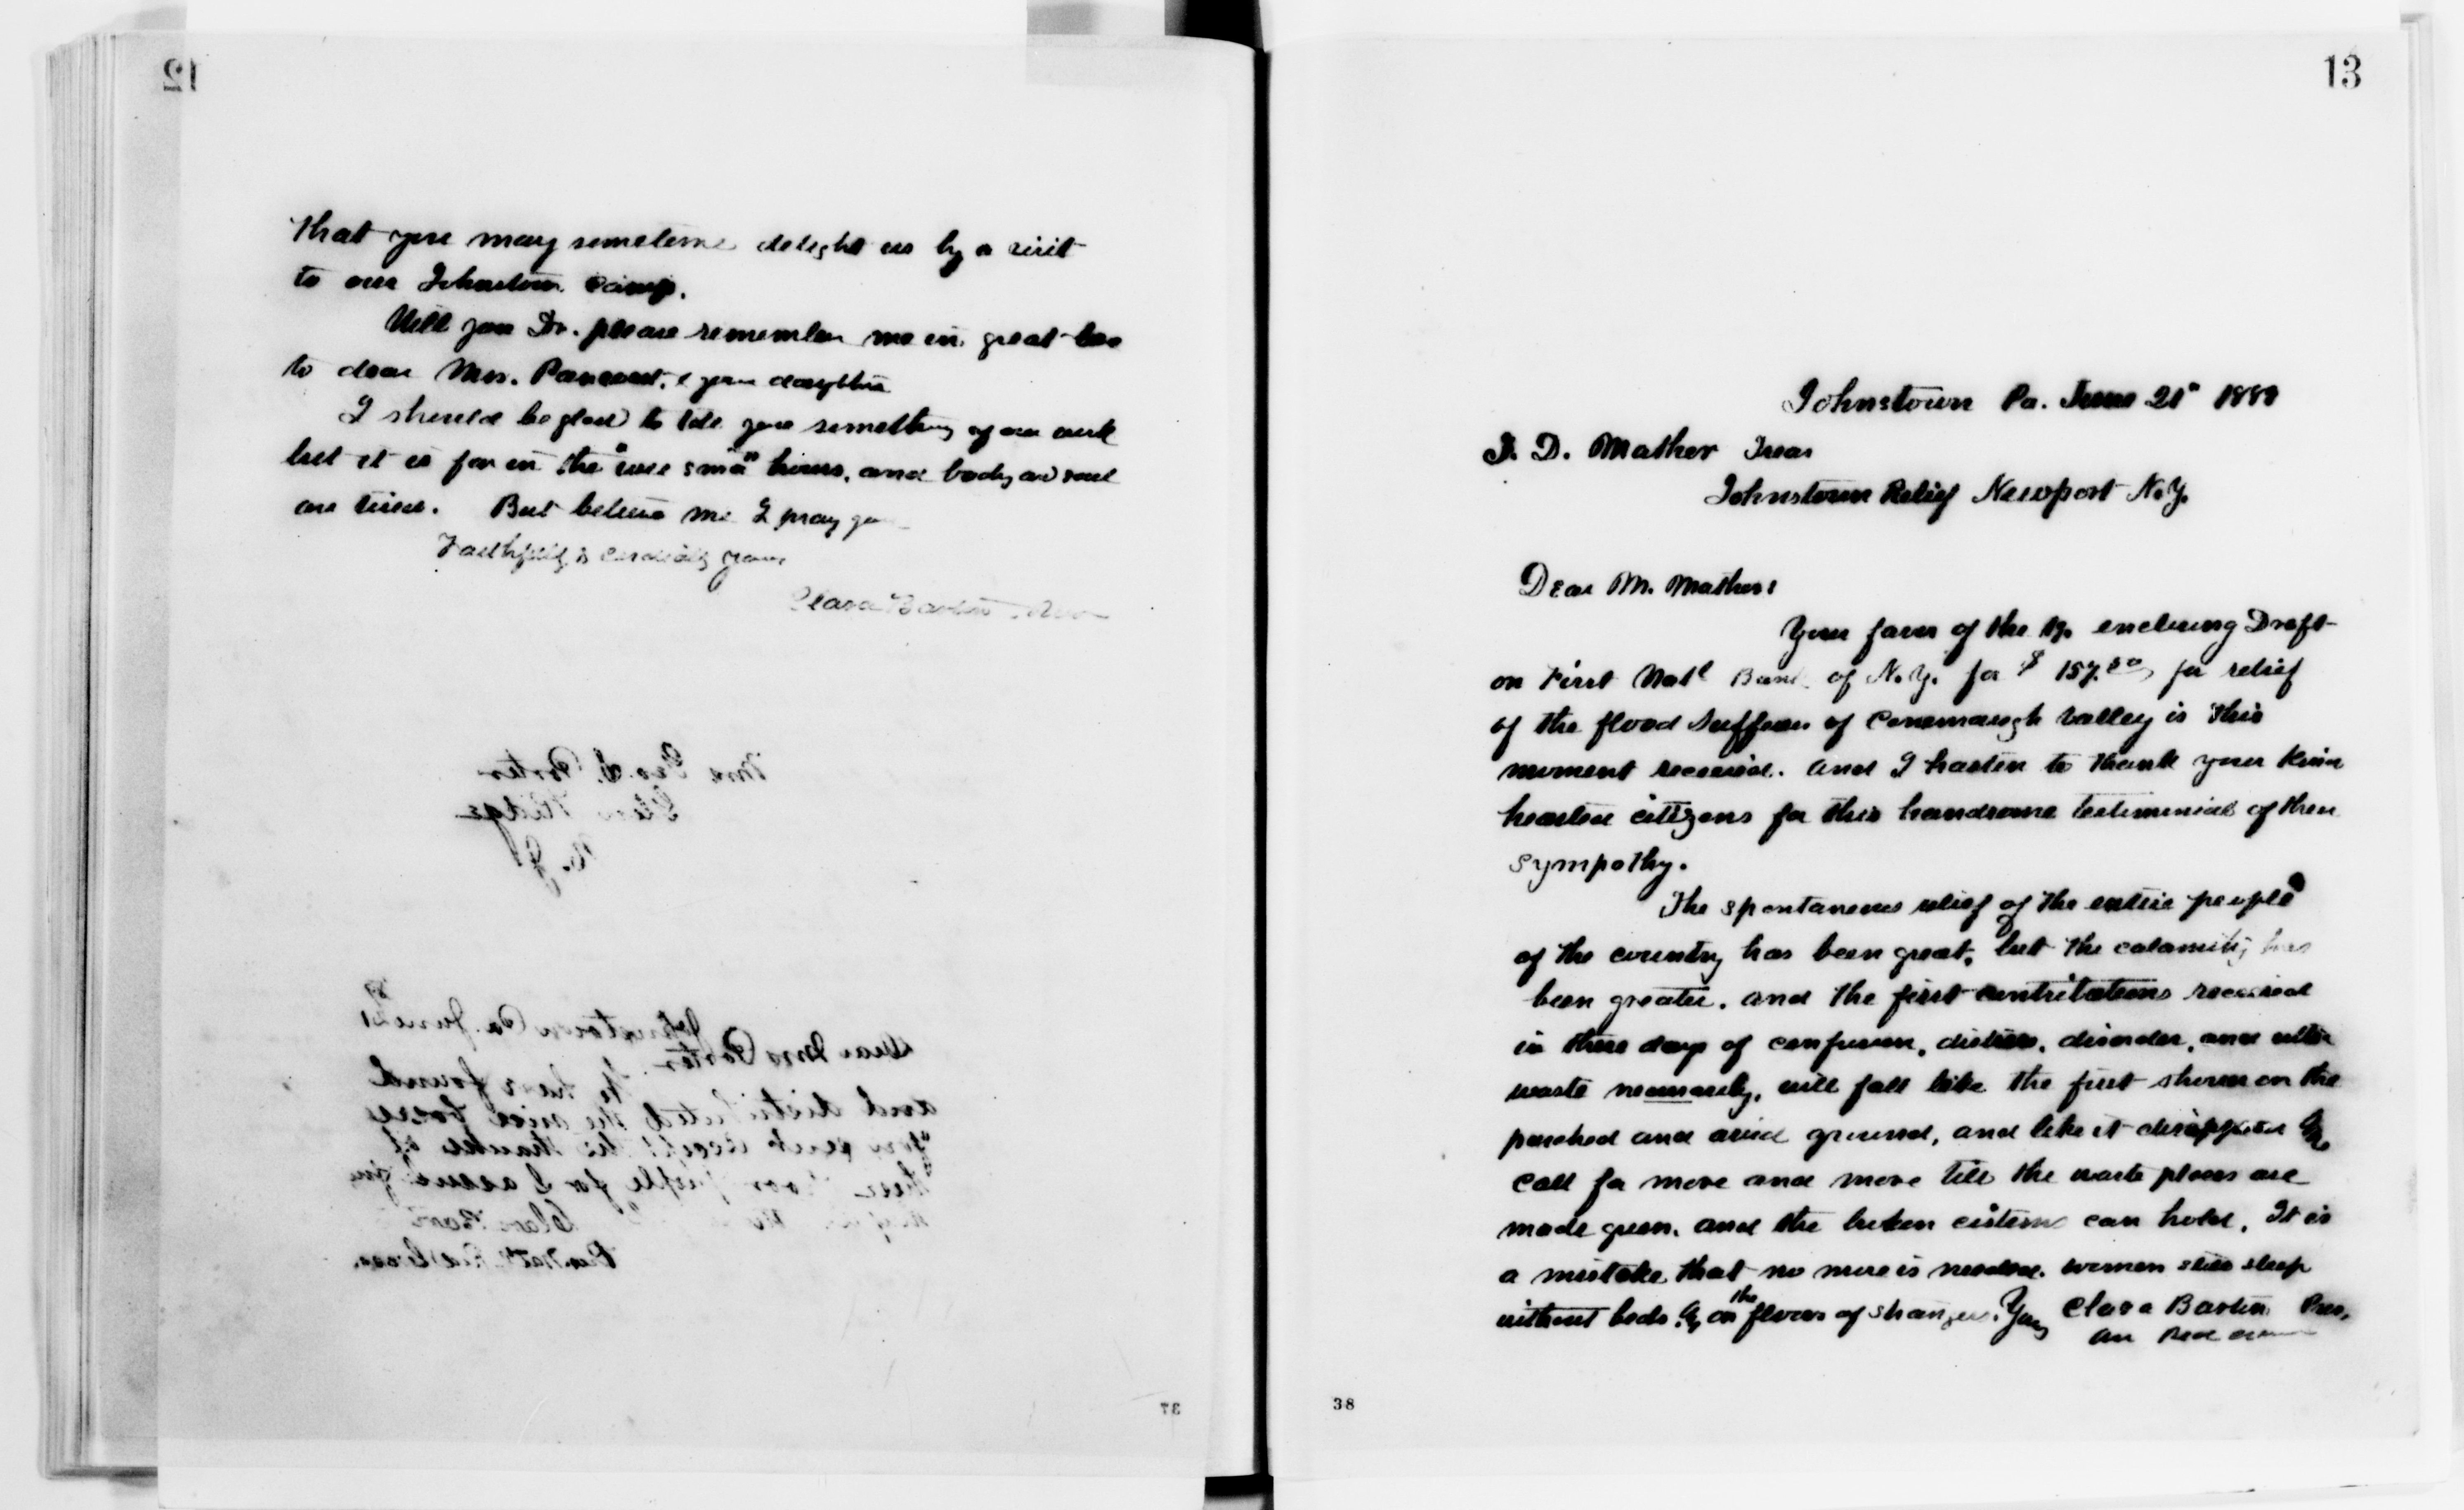 12
that you may sometime delight us by a visit
to our Johnstown Camp.
Will you Dr. please remember me in great love
to dear Mrs. Pancoast, & your daughter
I should be glad to tell you something of our work
but it is far in the "wee sma" hours, and body and soul
are tired. But believe me I pray you
Faithfully & cordially yours
Clara Barton
Mrs Geo. S. Porter
Glen Ridge
N. J.
Johnstown Pa. June 21
89
Dear Mrs Porter
We have found
and distributed the nice boxes
you sent accept the thanks of
these poor people for I assure you
Clara Barton
Pres. Nat. Red Cross.
37
13
Johnstown Pa. June 21" 1889
J. D. Mather Treas
Johnstown Relief Newport N.Y.
Dear Mr. Mather:
Your favor of the 19. enclosing Draft
on First Natl Bank of N.Y. for $157.50, for relief
of the flood sufferers of Conemaugh valley is this
moment received. and I hasten to thank your kind
hearted citizens for this handsome testimonial of their
sympathy.
The spontaneous relief of the entire people
of the country has been great, but the calamity has
been greater. and the first contributions received
in these days of confusion, distress, disorder, and utter
waste necessarily, will fall like the first shower on the
parched and arid ground, and like it disappear &
call for more and more till the waste places are
made green. and the broken cisterns can hold. It is
a mistake that no more is needed. women still sleep
without beds & on the floors of strangers. Yours Clara Barton Pres.
Am Red Cross
38